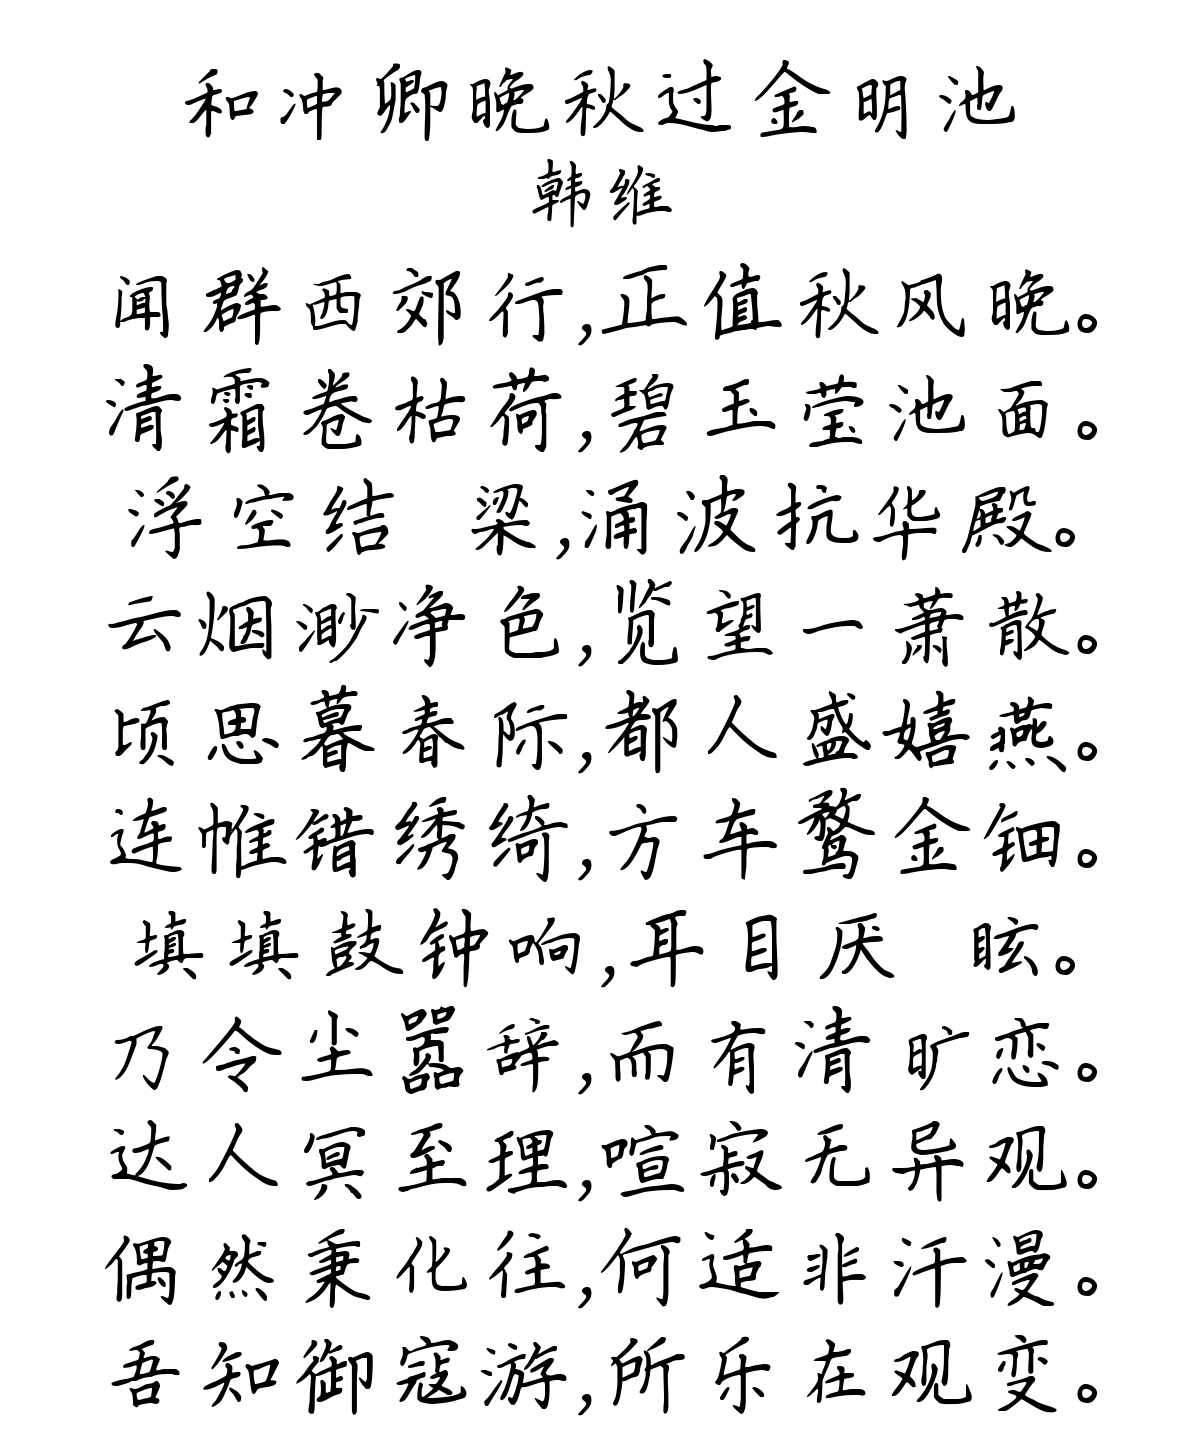 和冲卿晚秋过金明池
韩维
闻群西郊行,正值秋风晚。
清霜卷枯荷,碧玉莹池面。
浮空结 梁,涌波抗华殿。
云烟渺净色,览望一萧散。
顷思暮春际,都人盛嬉燕。
连帷错绣绮,方车鹜金钿。
填填鼓钟响,耳目厌 眩。
乃令尘嚣辞,而有清旷恋。
达人冥至理,喧寂无异观。
偶然秉化往,何适非汗漫。
吾知御寇游,所乐在观变。